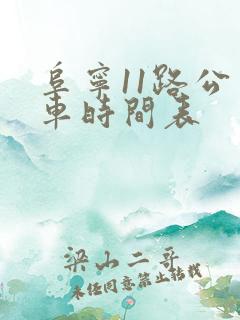 阜寧11路公
車時間表
梁山二哥
未经同意禁止转载